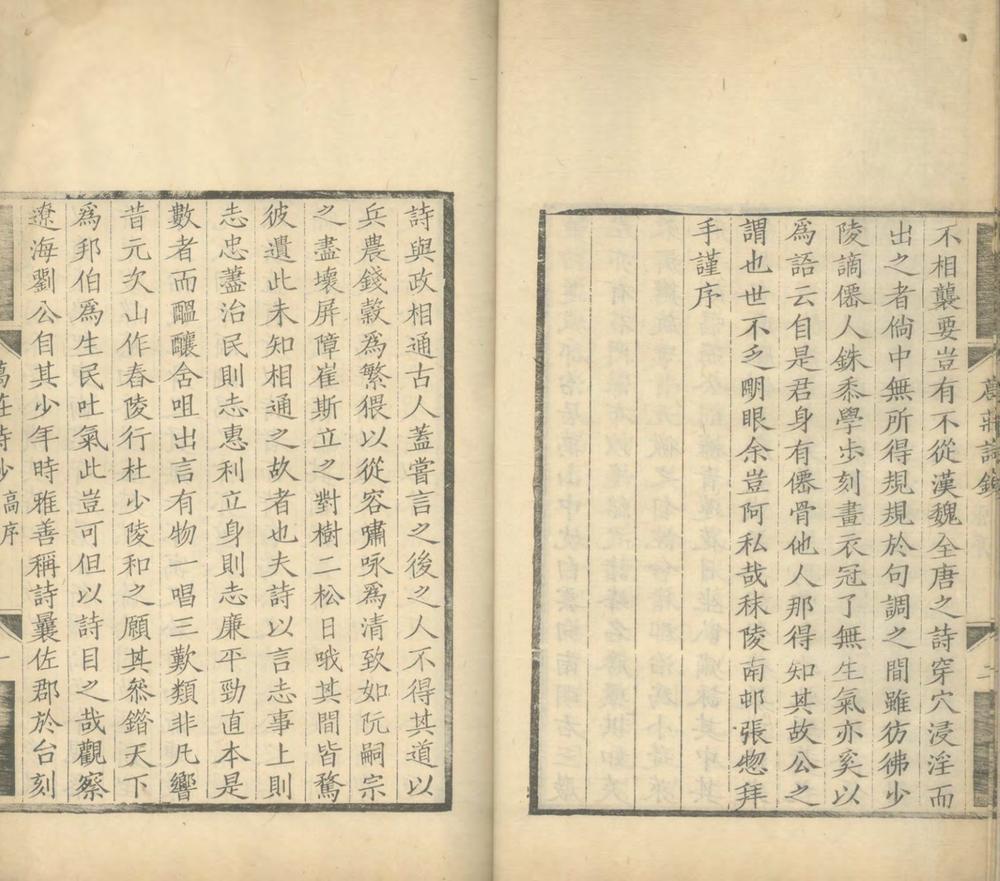 葛莊詩鈔
二
不相襲要豈有不從漢魏全唐之詩穿穴浸淫而
出之者倘中無所得規規於句調之間雖彷彿少
陵謫僊人銖黍學步刻畫衣冠了無生氣亦奚以
爲語云自是君身有僊骨他人那得知其故公之
謂也世不乏明眼余豈阿私哉秣陵南邨張惣拜
手謹序
詩與政相通古人蓋嘗言之後之人不得其道以
兵農錢穀爲繁猥以從容嘯咏爲清致如阮嗣宗
之盡壞屏障崔斯立之對樹二松日哦其間皆騖
彼遺此未知相通之故者也夫詩以言志事上則
志忠藎治民則志惠利立身則志廉平勁直本是
數者而醞釀含咀出言有物一唱三歎類非凡響
昔元次山作舂陵行杜少陵和之願其叅錯天下
爲邦伯爲生民吐氣此豈可但以詩目之哉觀察
遼海劉公自其少年時雅善稱詩曩佐郡於台刻
葛莊詩鈔
高序
一